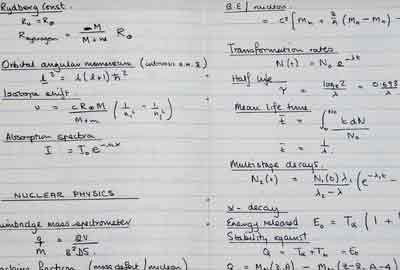 Rydberg Const.
R∞ = R∞
R Hydrogen = M / M+m R∞
Orbital angular momentum
l² = l(l+1) ħ²
Isotope shift.
ν = cR∞M / M+m (1/n₁² - 1/n₂²)
Absorption spectra
I = I₀e
NUCLEAR PHYSICS
mass spectrometer
q/M = 2V / B²DS
fraction (mass defect / nucleon)
B.E / nucleon
= c² [Mn + Z/A (MH - Mn) -
Transformation rates
N(t) = N₀ e^-λt
Half life
τ = loge2 / λ = 0.693 / λ
Mean life time
t̄ = ∫ t dN / N₀
t̄ = 1/λ
Multistage decays.
N₂(t) = N₁(0) λ₁ / λ₂ - λ₁ (e^-λ₁t -
α - decay
Energy released E₀ = Tα (1 +
Stability against
Q = Tα + Tb = E₀
Q = M (Z, A) - M (Z-2, A-4)